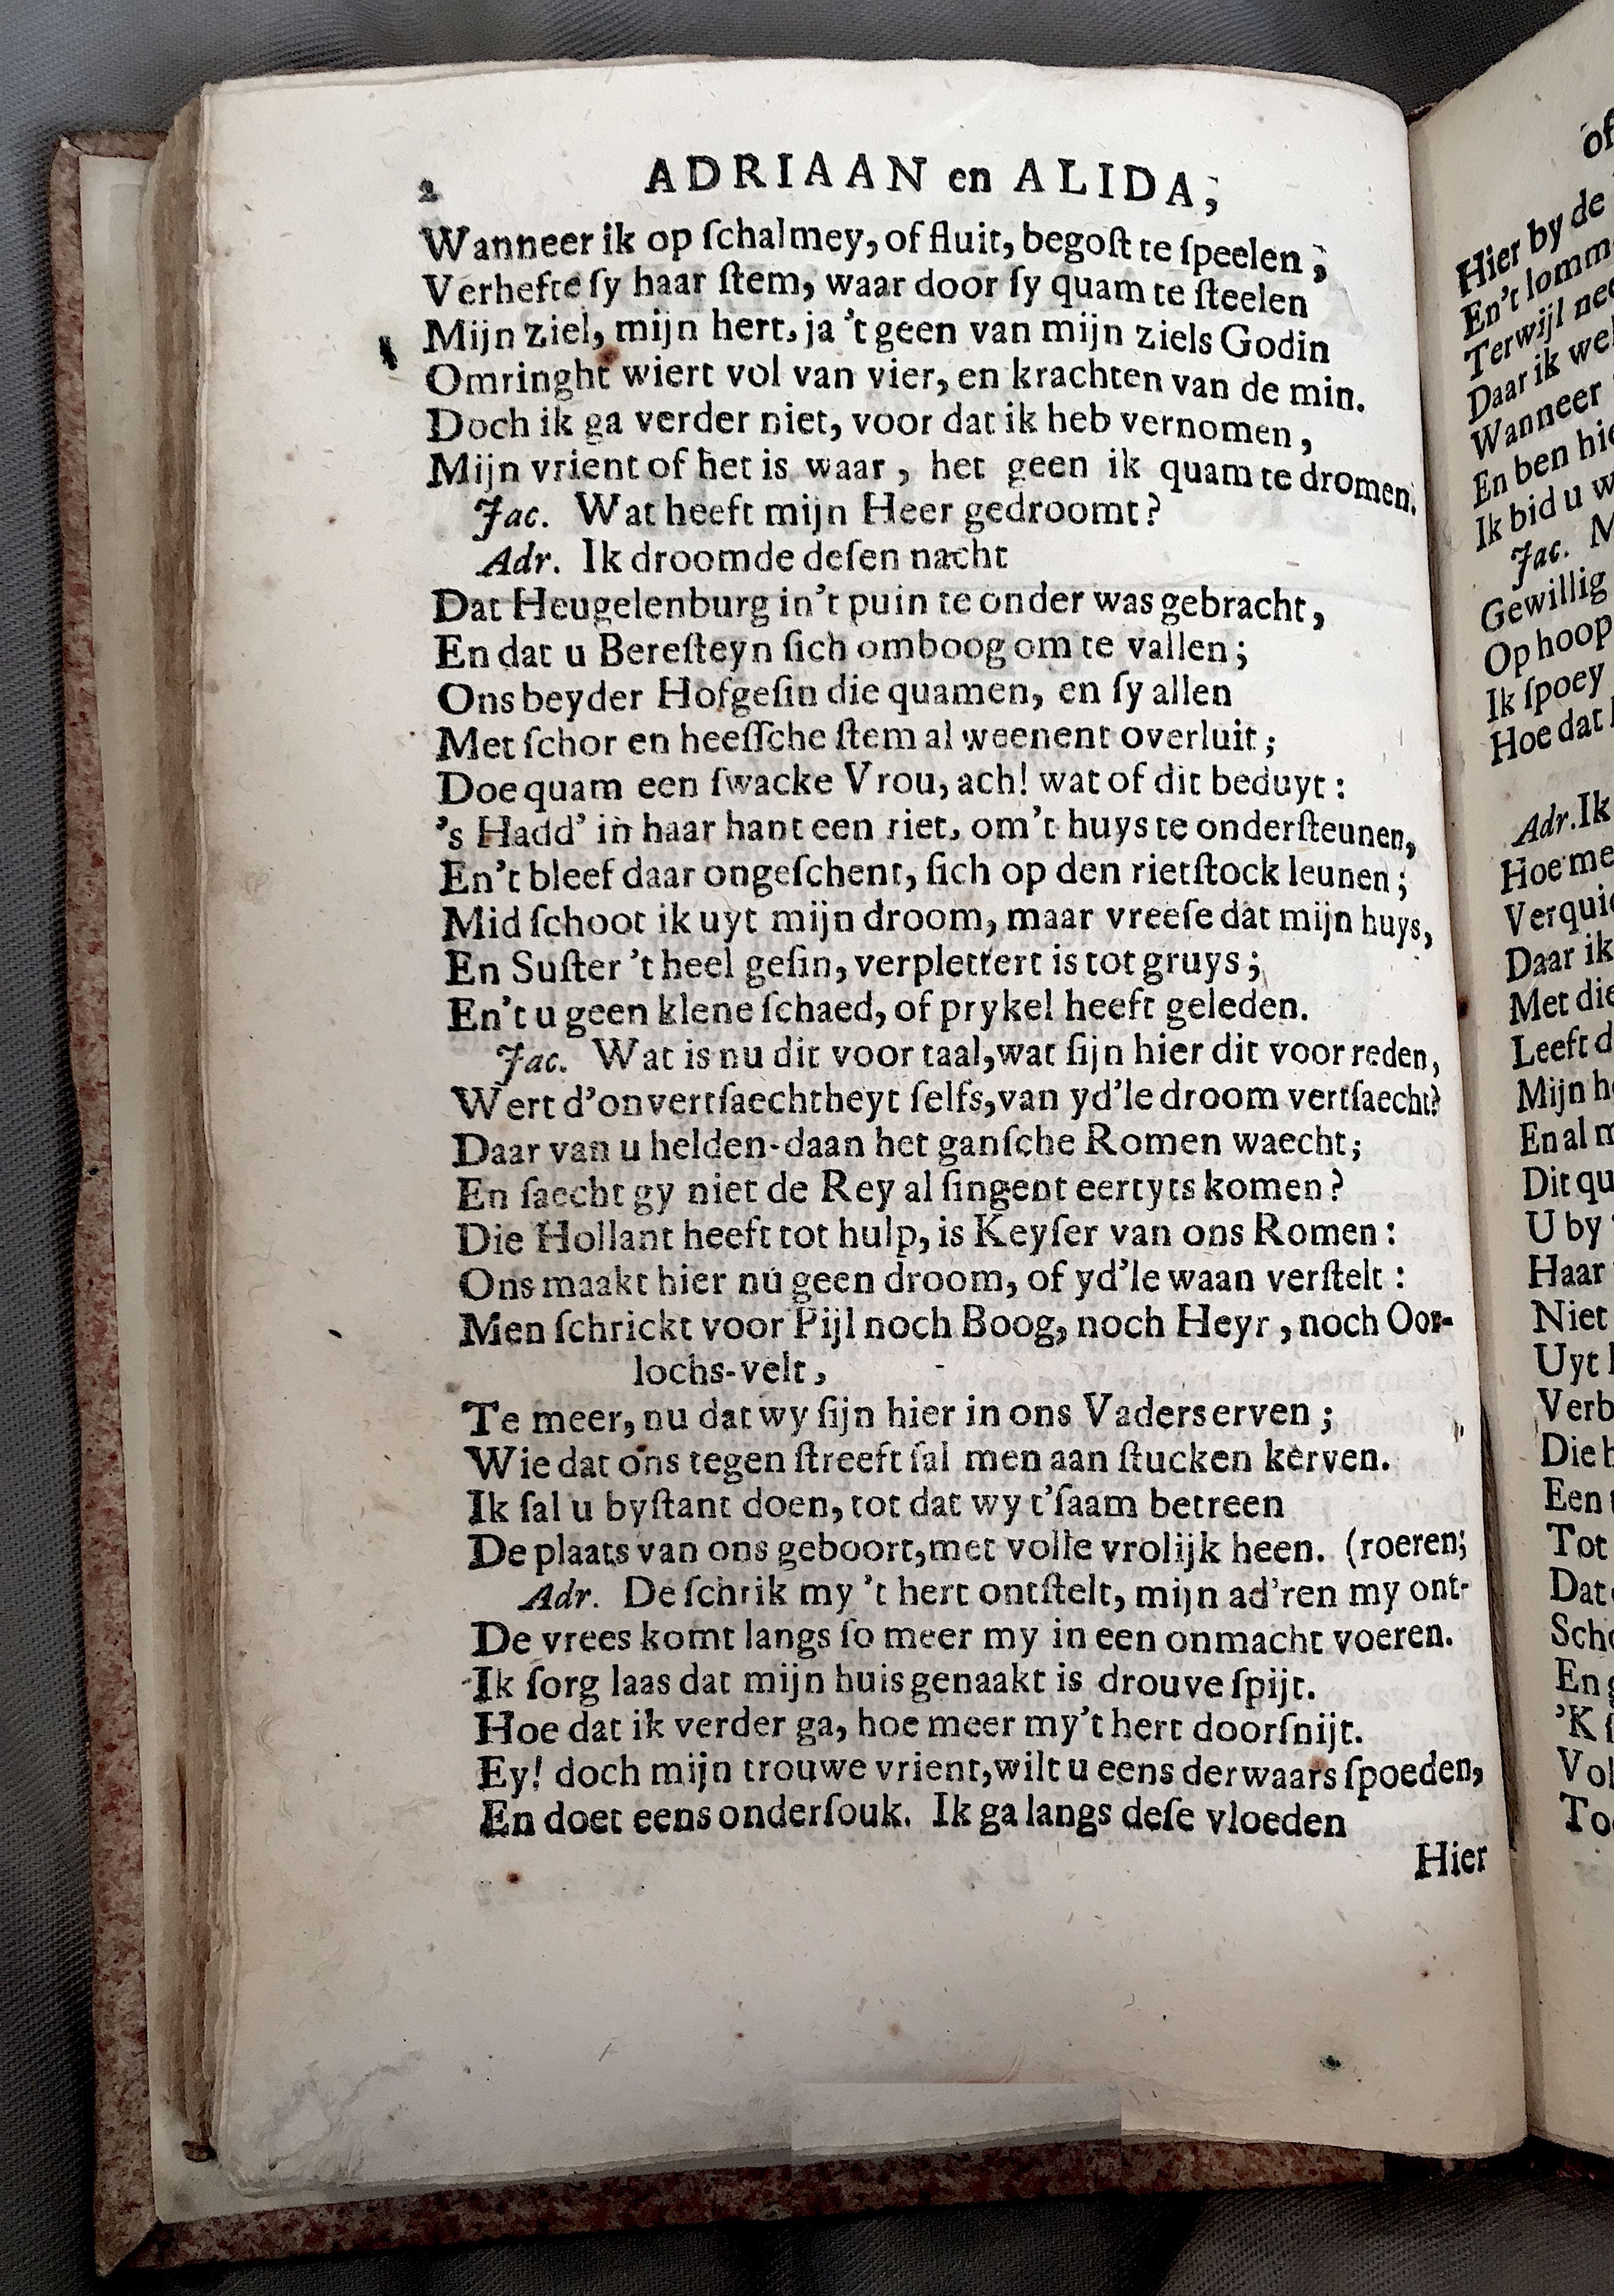 2 ADRIAAN en ALIDA,
Wanneer ik op ſchalmey, of fluit, begoſt te ſpeelen,
Verhefte ſy haar ſtem, waar door ſy quam te ſteelen
Mijn ziel, mijn hert, ja 't geen van mijn ziels Godin
Omringht wiert vol van vier, en krachten van de min.
Doch ik ga verder niet, voor dat ik heb vernomen,
Mijn vrient of het is waar, het geen ik quam te dromen.
Jac. Wat heeft mijn Heer gedroomt?
Adr. Ik droomde deſen nacht
Dat Heugelenburg in't puin te onder was gebracht,
En dat u Bereſteyn ſich omboog om te vallen;
Ons beyder Hofgeſin die quamen, en ſy allen
Met ſchor en heeſſche ſtem al weenent overluit;
Doe quam een ſwacke Vrou, ach! wat of dit beduyt:
's Hadd' in haar hant een riet, om't huys te onderſteunen,
En't bleef daar ongeſchent, ſich op den rietſtock leunen;
Mid ſchoot ik uyt mijn droom, maar vreeſe dat mijn huys,
En Suſter 't heel geſin, verplettert is tot gruys;
En't u geen klene ſchaed, of prykel heeft geleden.
Jac. Wat is nu dit voor taal, wat ſijn hier dit voor reden,
Wert d'onvertſaechtheyt ſelfs, van yd'le droom vertſaecht?
Daar van u helden-daan het ganſche Romen waecht;
En ſaecht gy niet de Rey al ſingent eertyts komen?
Die Hollant heeft tot hulp, is Keyſer van ons Romen:
Ons maakt hier nu geen droom, of yd'le waan verſtelt:
Men ſchrickt voor Pijl noch Boog, noch Heyr, noch Oor-
lochs-velt,
Te meer, nu dat wy ſijn hier in ons Vaders erven;
Wie dat ons tegen ſtreeft ſal men aan ſtucken kerven.
Ik ſal u byſtant doen, tot dat wy t'ſaam betreen
De plaats van ons geboort, met volle vrolijk heen. (roeren;
Adr. De ſchrik my 't hert ontſtelt, mijn ad'ren my ont-
De vrees komt langs ſo meer my in een onmacht voeren.
Ik ſorg laas dat mijn huis genaakt is drouve ſpijt.
Hoe dat ik verder ga, hoe meer my't hert doorſnijt.
Ey! doch mijn trouwe vrient, wilt u eens derwaars ſpoeden,
En doet eens onderſouk. Ik ga langs deſe vloeden
Hier
of
Hier by de
En't
Terwijl
Daar ik
Wanneer
En ben
Ik bid u
Jac.
Gewillig
Op hoop
Ik ſpoey
Hoe dat
Adr. Ik
Hoe
Daar ik
Met die
Leeft
Mijn
En al
Dit
U by
Haar
Niet
Uyt
Een
Tot
En
'K